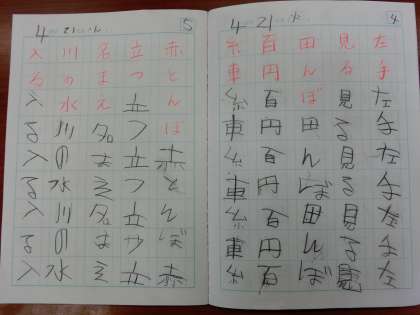 4 21 火
4
左手左手左手左手左
見る見る見る見る見
田んぼ田んぼ田んぼ
百円百円百円百円百
糸車糸車糸車糸車糸
4 21
5
赤とんぼ赤とんぼ赤
立つ立つ立つ立つ立
名まえ名まえ名まえ
川の水川の水川の水
入る入る入る入る入